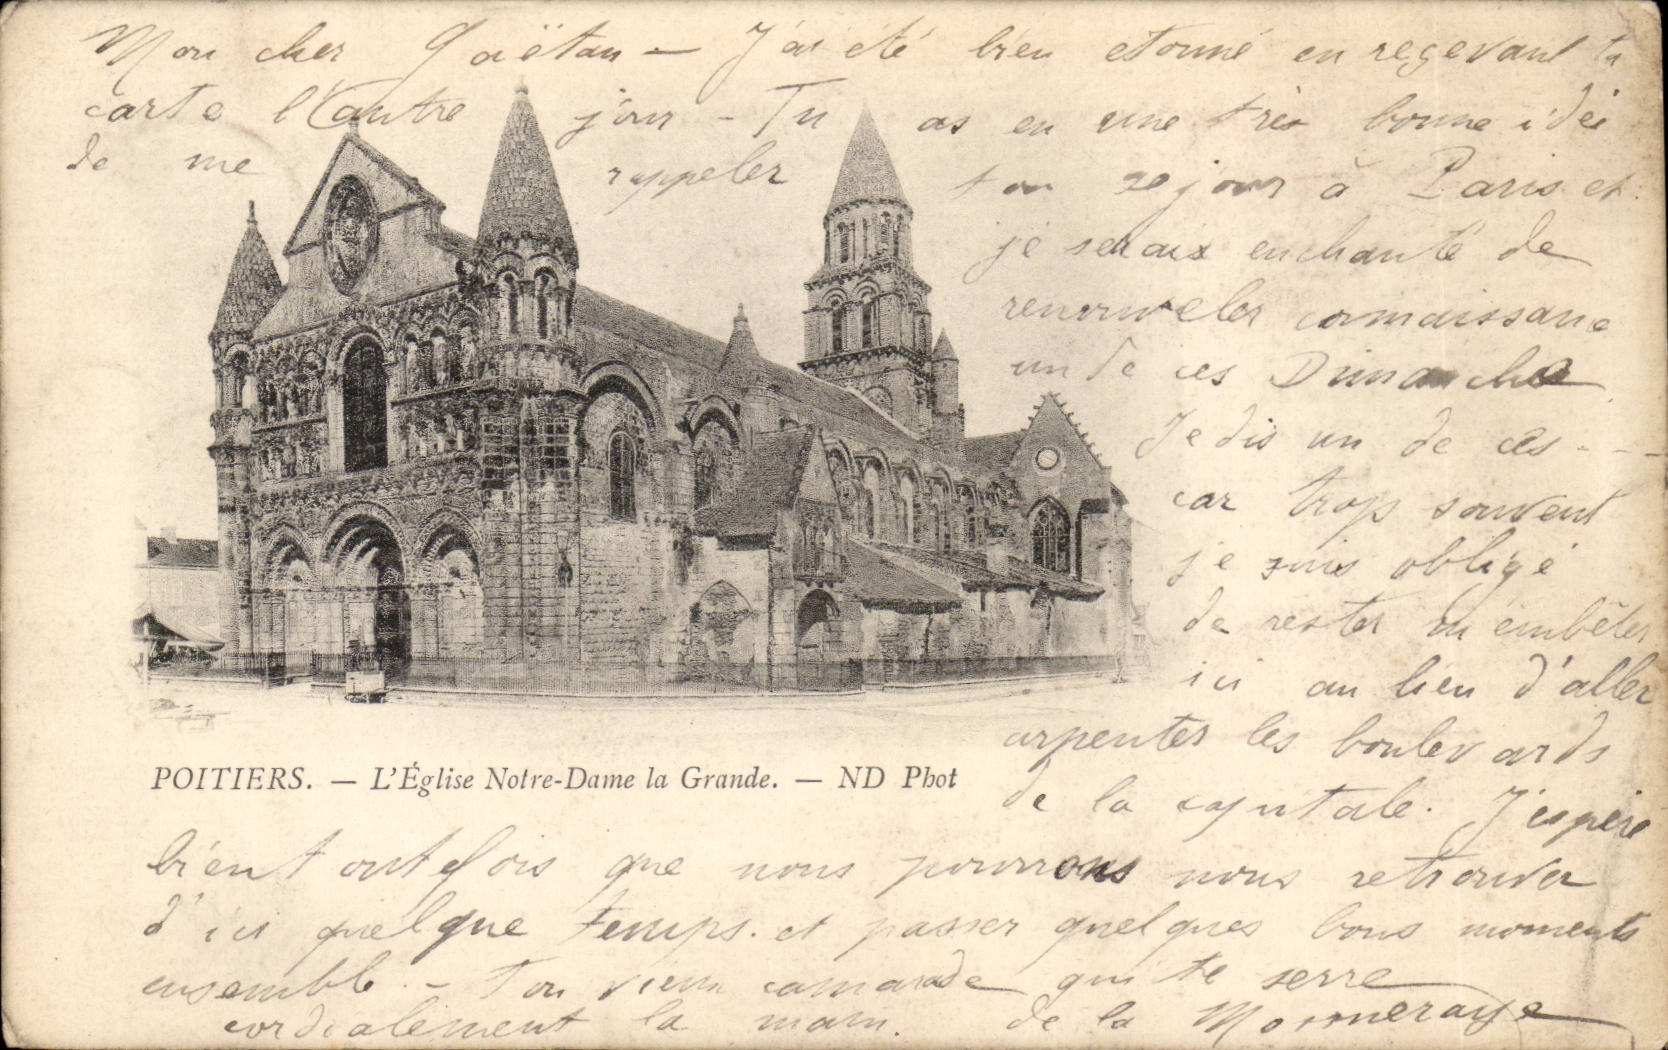 Mon cher Gaëtan — J'ai été bien etonné en recevant ta
carte l'autre jour - Tu as eu une très bonne idée
de me rappeler ton sejour à Paris et
je serais enchanté de
renouveler connaissance
un de ces Dimanche
Je dis un de ces - - -
car trop souvent
je suis obligé
de rester m'embêter
ici au lieu d'aller
arpenter les boulevards
de la capitale. J'espère
bien toutefois que nous pourrons nous retrouver
d'ici quelque temps. et passer quelques bons moments
ensemble. - Ton vieux camarade qui te serre
cordialement la main. de la Monneraye
POITIERS. — L'Église Notre-Dame la Grande. — ND Phot